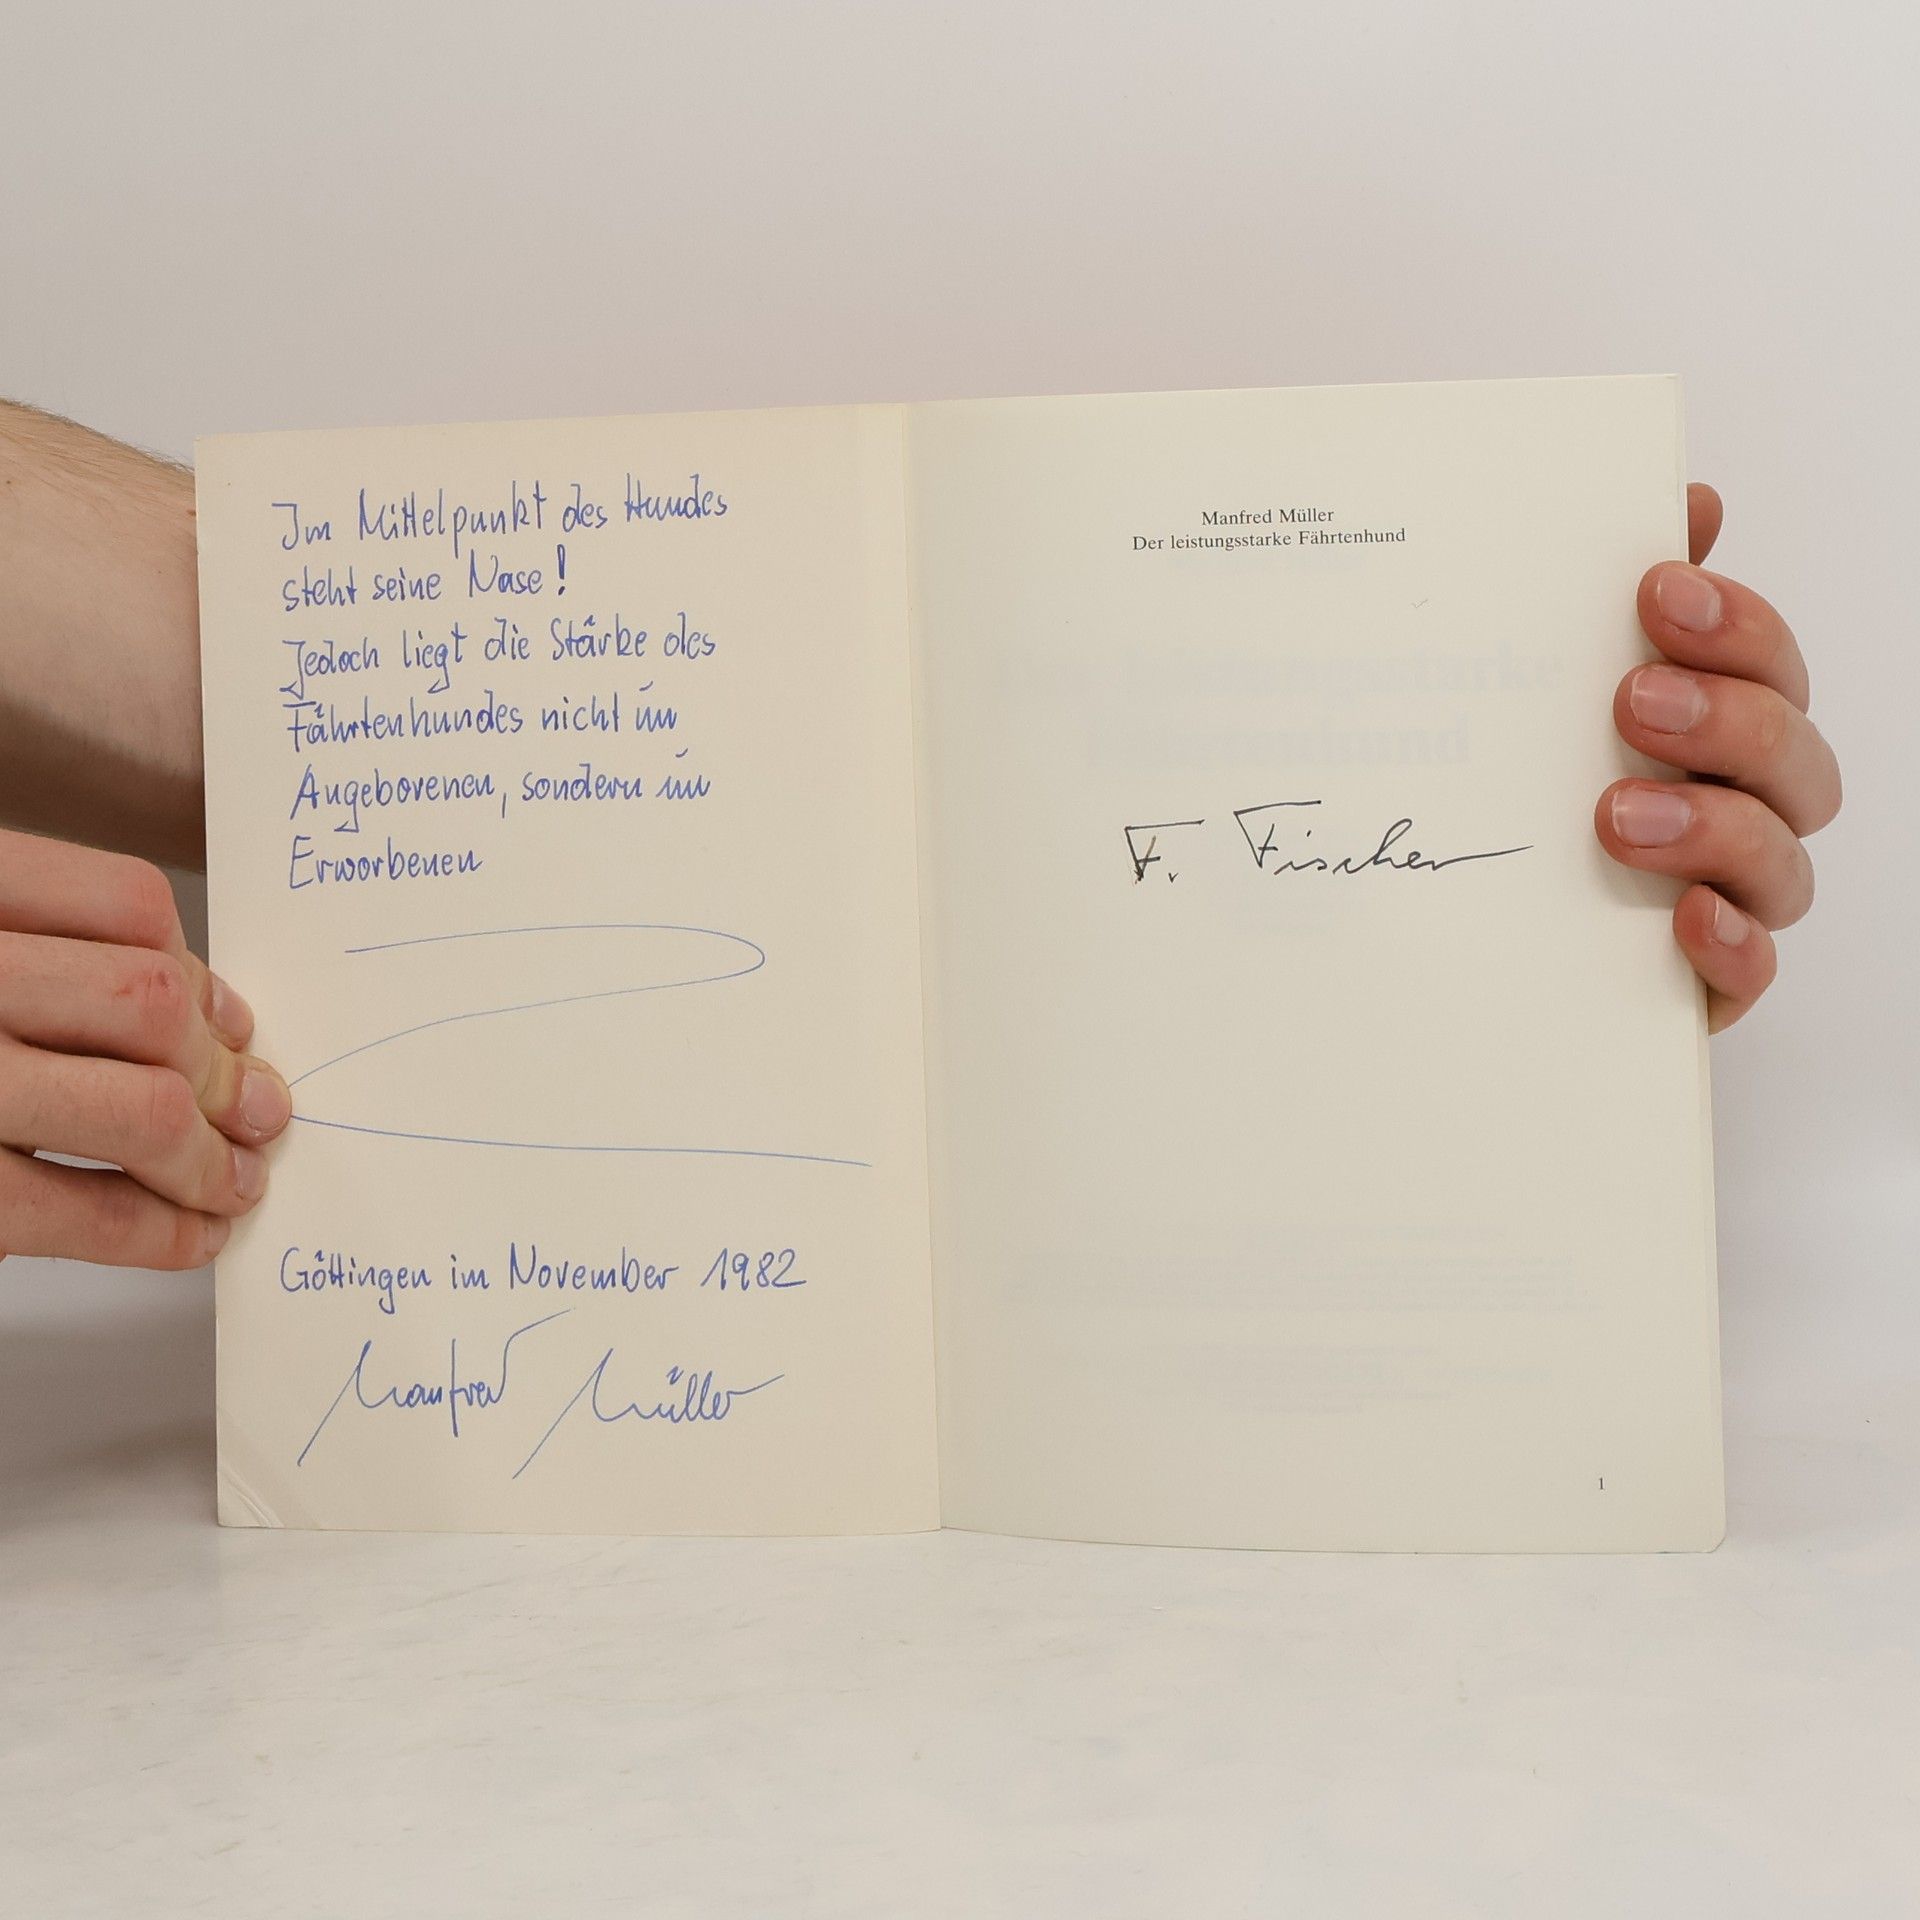 Im Mittelpunkt des Hundes
steht seine Nase!
Jedoch liegt die Stärke des
Fährtenhundes nicht im
Angeborenen, sondern im
Erworbenen
Göttingen im November 1982
Manfred Müller
Manfred Müller
Der leistungsstarke Fährtenhund
F. Fischer
1